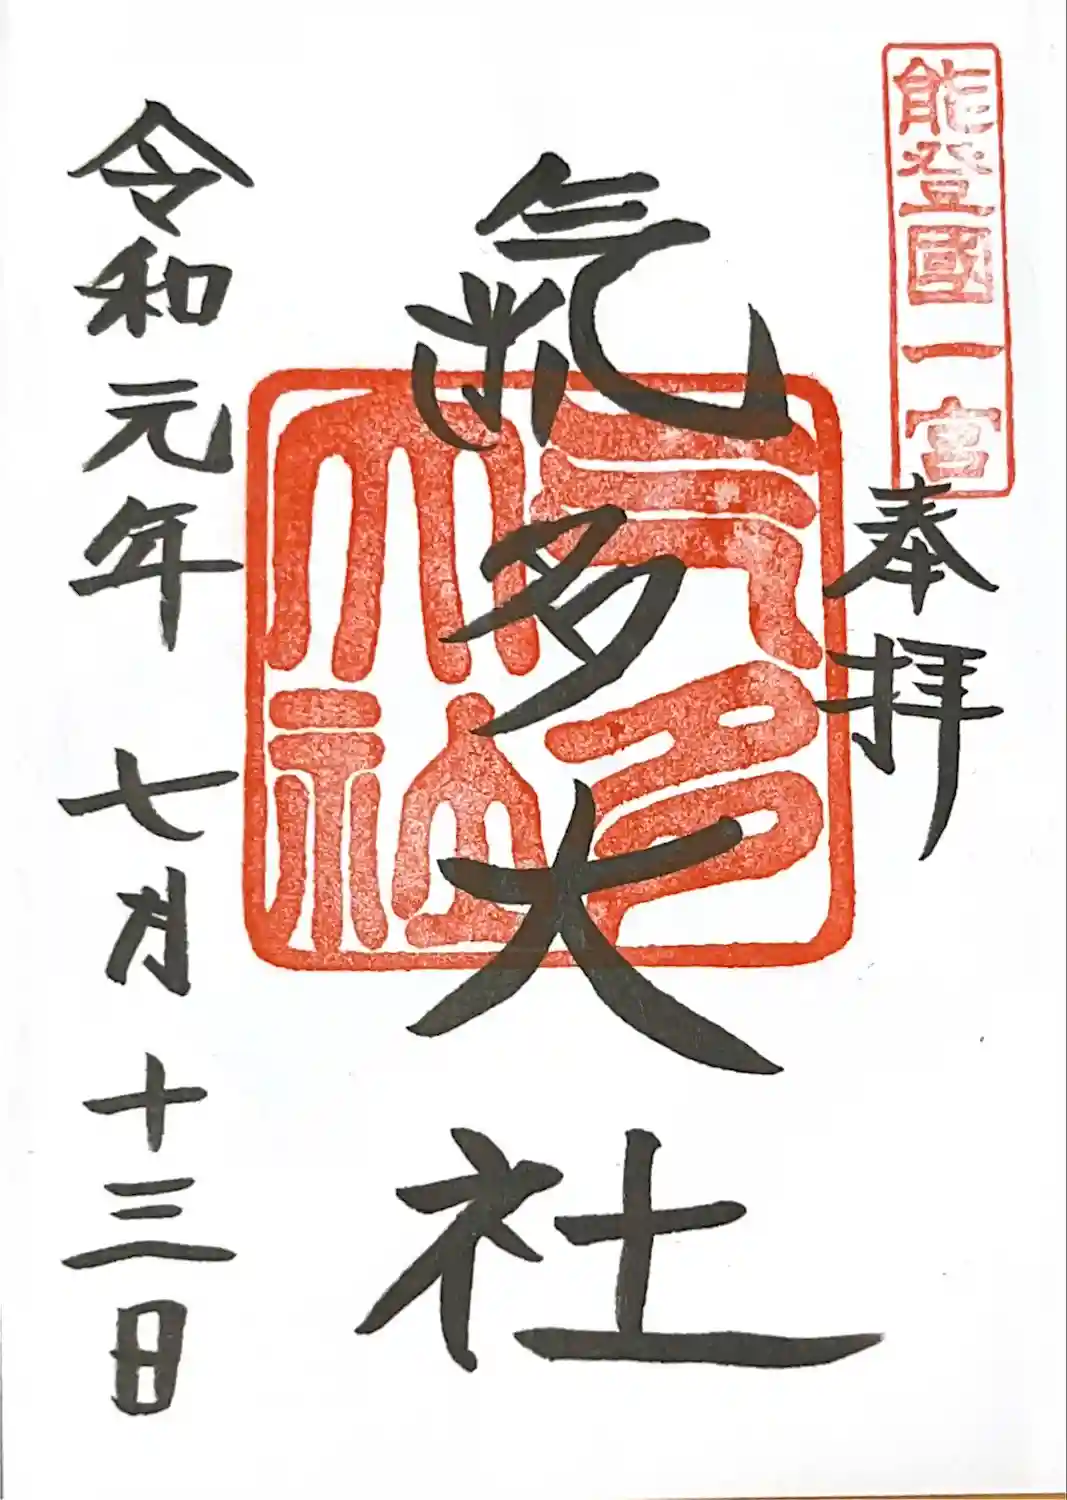 能登國一宮
奉拝
氣多大社
气多大社
令和元年 七月 十三日